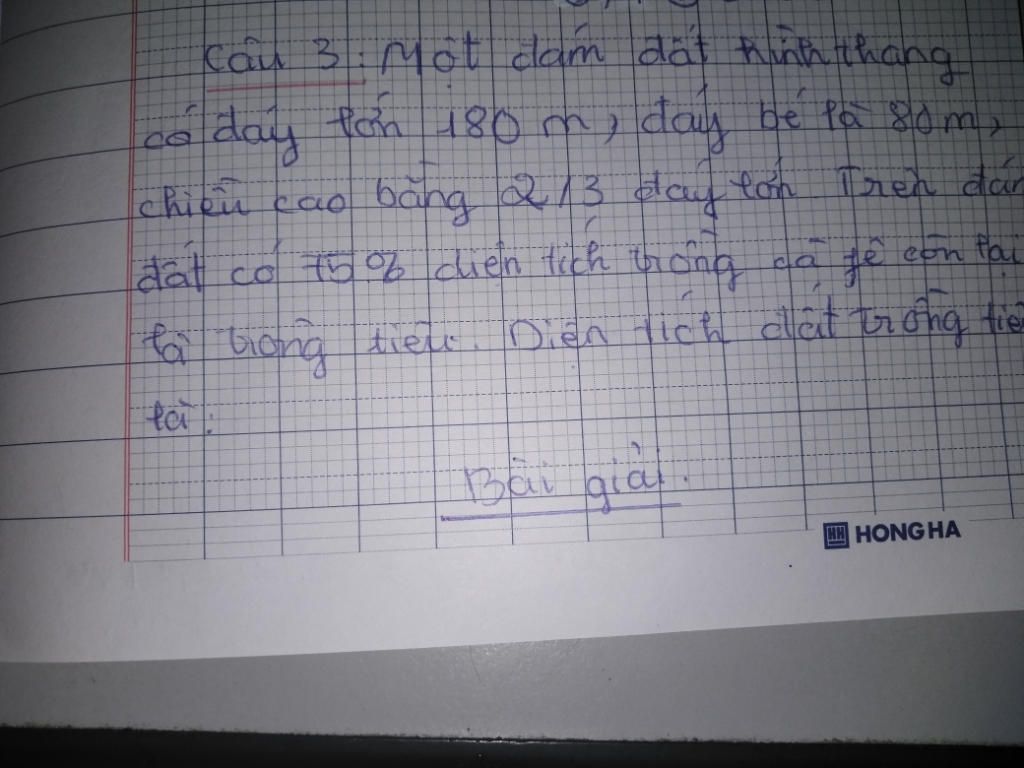 Câu 3: Một đám đất hình thang
có đáy lớn 180 m, đáy bé là 80 m,
chiều cao bằng 2/3 đáy lớn Trên đám
đất có 75% diện tích trồng cà fê còn lại
là trồng tiêu. Diện tích đất trồng tiê
là:
Bài giải.
HONG HA